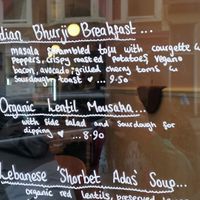 dian Bhurji Breakfast...
masala scrambled tofu with courgette
peppers, crispy roasted potatoes, vegano
bacon, avocado, grilled cherry toms &
Sourdough toast ♥ ... 9.50
Organic Lentil Mousaka...
with side salad and Sourdough for
dipping ♥ ... 8.90
Lebanese 'Shorbet Adas' Soup...
organic red lentils, preserved